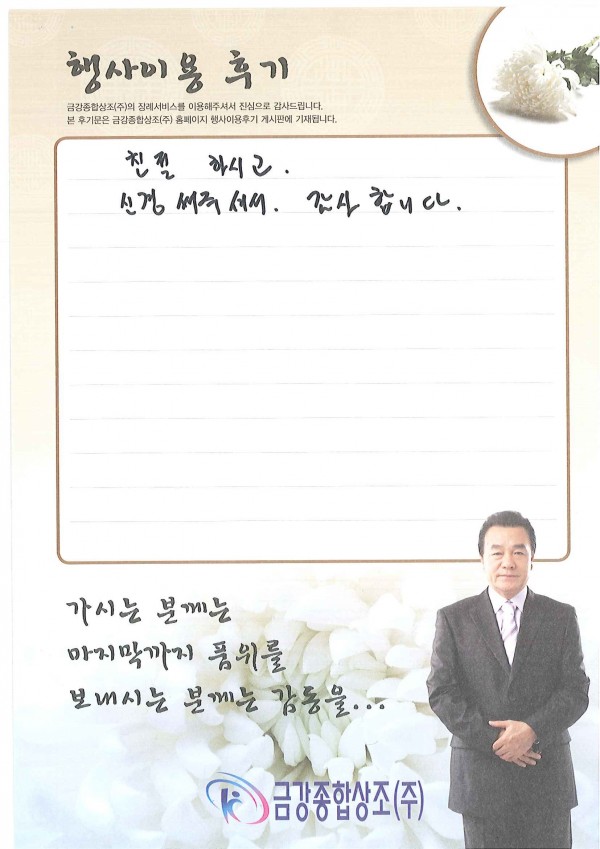 행사이용 후기
금강종합상조(주)의 장례서비스를 이용해주셔서 진심으로 감사드립니다.
본 후기문은 금강종합상조(주) 홈페이지 행사이용후기 게시판에 기재됩니다.
친절 하시고.
신경 써주셔서. 감사 합니다.
가시는 분께는
마지막까지 품위를
보내시는 분께는 감동을...
금강종합상조(주)